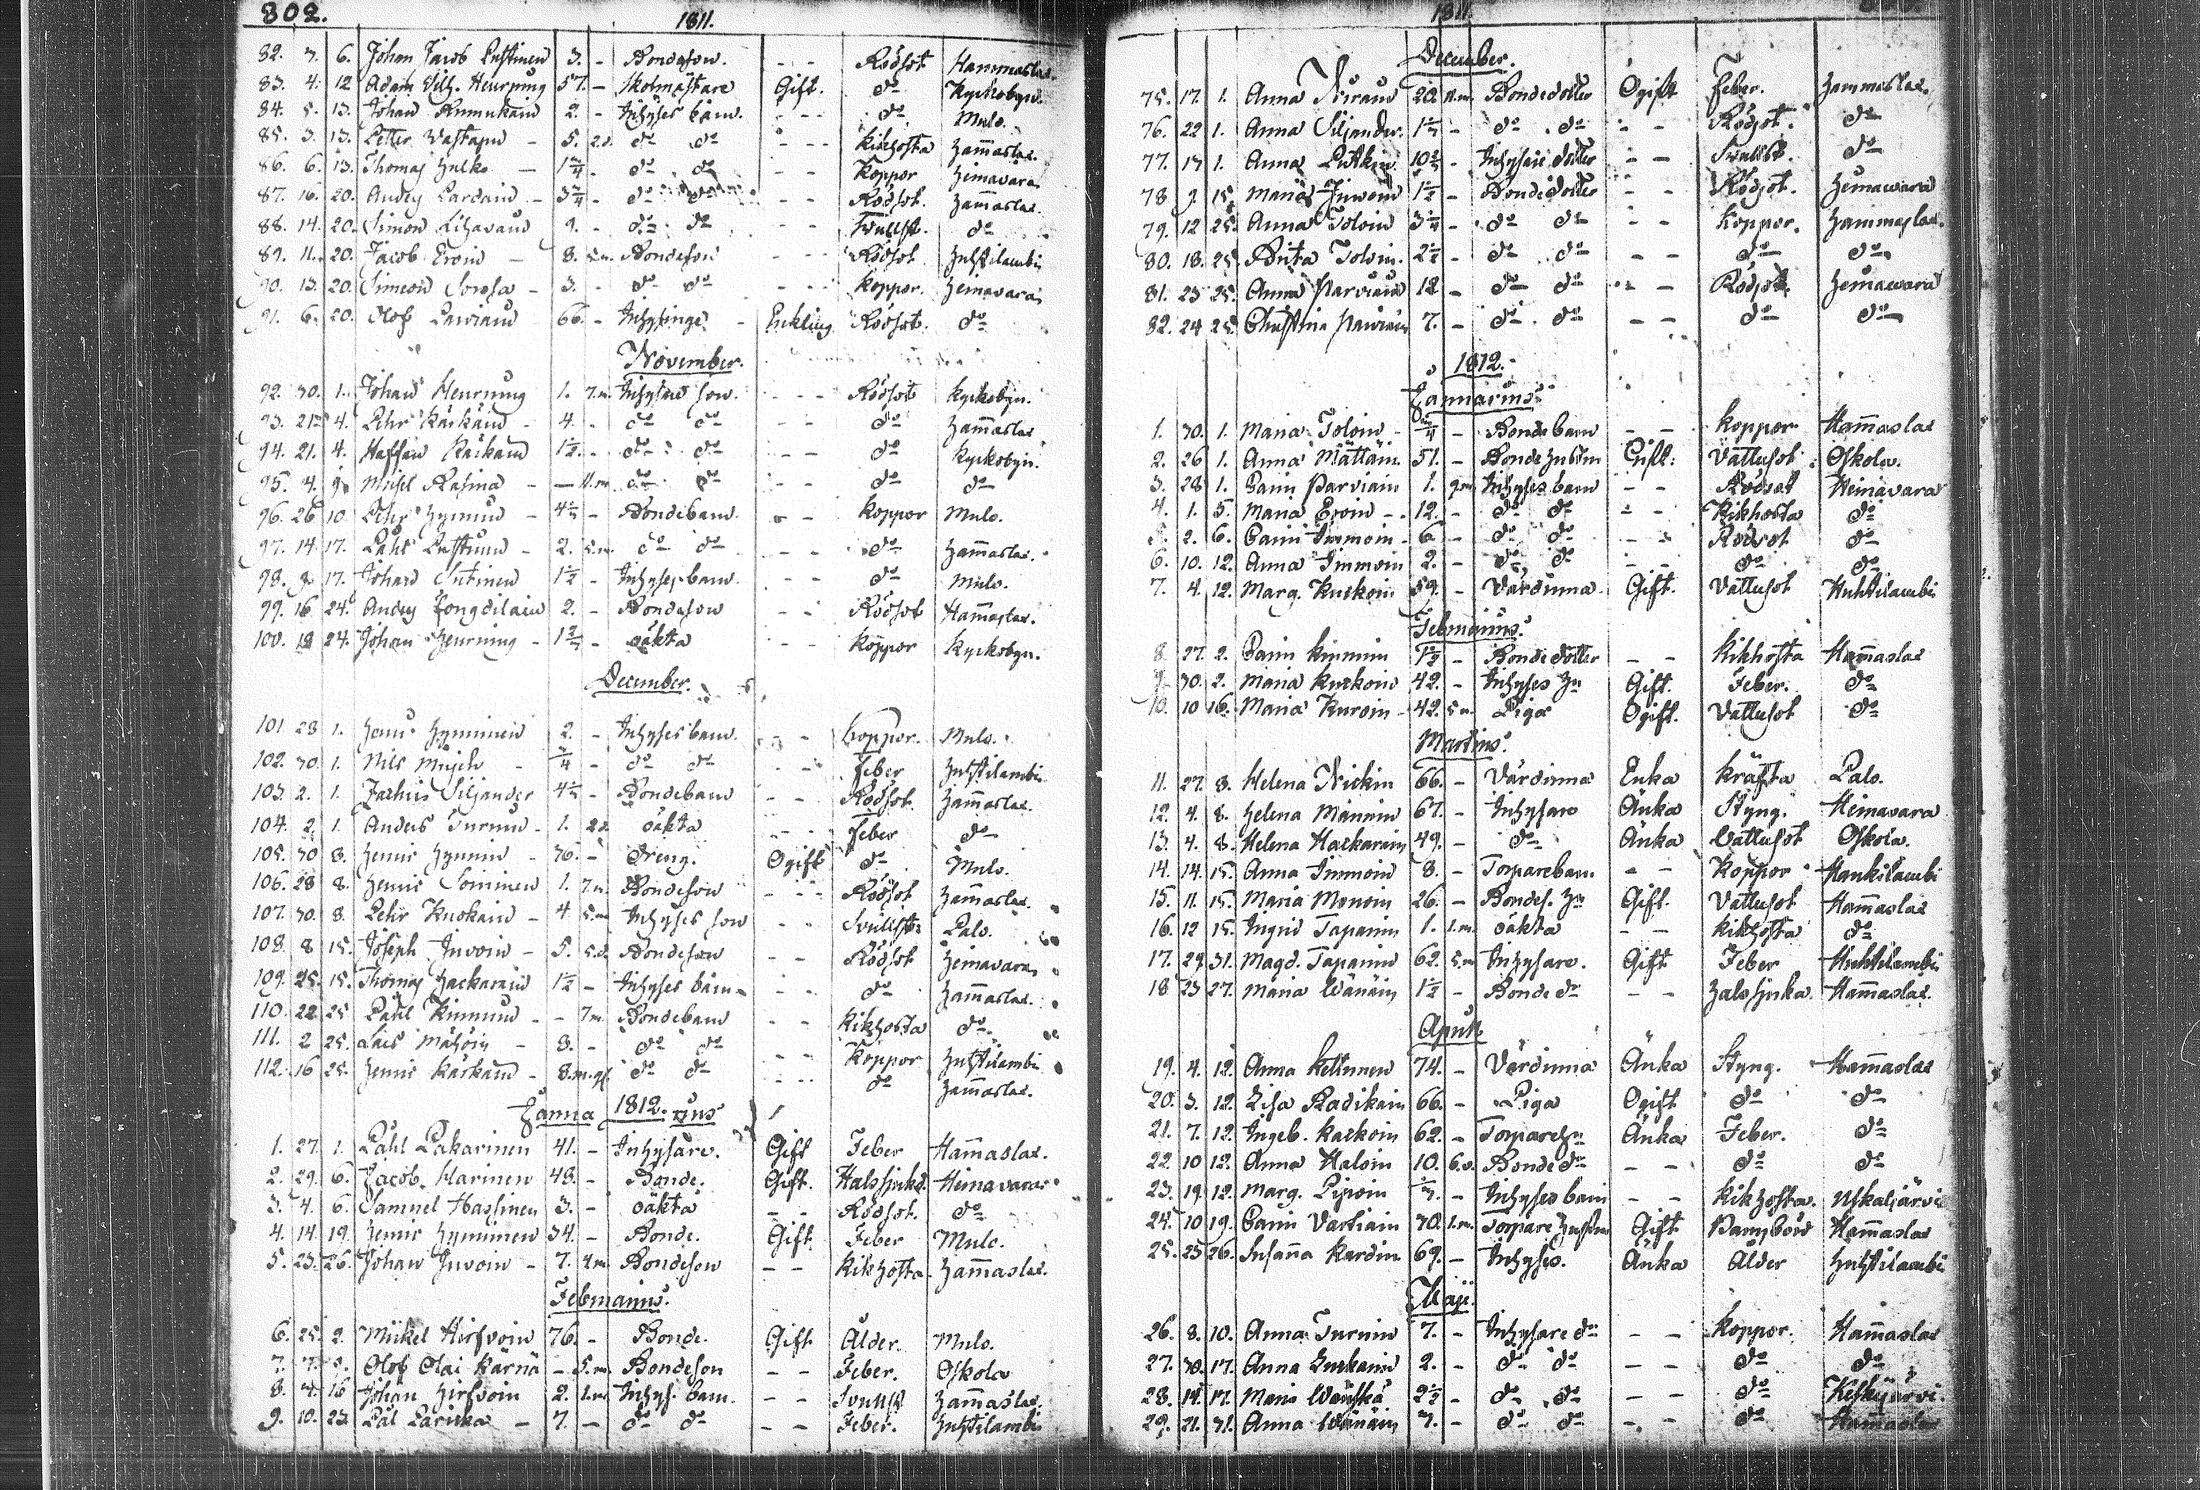 802.
1811.
82. 7. 6. Johan Jacob 3. - Bondeson. - - Rödsot Hammaslax.
83. 4. 12 Adam Vilh. Heurning 57. - Skolmästare Gift. do Kyrkobyn.
84. 5. 13. Johan 2. - Inhyses barn. - - do Mulo.
85. 3. 13. Petter 5. 2d. do do - - Kikhosta Hammaslax.
86. 6. 13. Thomas Hulko - do do - - Koppor Heinavara
87. 16. 20. Anders - do do Rödsot. Hammaslax.
88. 14. 20. Simon 9. - do do - - do
89. 11. 20. Jacob Eroin - 8. 5m. Bondeson - - Rödsot Huhtilambi
90. 13. 20. Simeon - 3. - do do - - Koppor. Heinavara
91. 6. 20. Olof 66. - Inhysinge - Enkling Rödsot. do
November.
92. 30. 1. Johan Heurnung 1. 7.m. Inhyses son. - - Rödsot Kyrkobyn.
93. 4. Pehr Käikäin - 4. - do do - - do Hammaslax
94. 21. 4. Staffan Käikäin 1½. - do do do Kyrkobyn.
95. 4. 9. Mickel Rasina - - 11.m. do do - - do do
96. 26 10. Pehr Hyminin - - Bondebarn. - - Koppor Mulo.
97. 14. 17. Påhl - 2. 5.m. do do - - do Hammaslax.
98. 9. 17. Johan Sutinen - 1½ - Inhyses barn. - - do Mulo.
99. 16 24. Anders 2. - Bondeson - - Rödsot Hammaslax.
100. 19 24. Johan Heurning - - oäkta - - Koppor Kyrkobyn.
December.
101. 28 1. Hyminen 2. - Inhyses barn. - - Koppor. Mulo.
102. 30. 1. Nils - ¾ - do do - - Feber Huhtilambi
103. 2. 1. Siljander - Bondebarn - - Rödsot Hammaslax.
104. 2. 1. Anders Turunin - 1. 2d. oäkta - - Feber do
105. 30 8. Henric Hyminin - 76. - Dreng. Ogift do Mulo.
106. 28 8. Henric Soininen 1. 7.m. Bondeson - - Rödsot Hammaslax.
107. 30. 8. Pehr - 4. 5.m. Inhyses son - - Palo.
108. 8 15. Joseph Juvoin - 5. 5.d. Bondeson - - Rödsot Heinavara
109. 25. 15. Thomas Hackarain 1½ - Inhyses barn - - do Hammaslax.
110. 22 25 Påhl Kinnunin - - 7m. Bondebarn - - Kikhosta do
111. 2 25. Lars - 3. - do do - - Koppor Huhtilambi
112. 16 25. Henric Käikäin - 8.m. do do - - do Hammaslax.
1812. Januarius
1. 27. 1. Påhl Pakarinen 41. - Inhysare. Gift Feber Hammaslax.
2. 29. 6. Jacob Harinen 48. - Bonde. Gift. Halssjuka Heinavara
3. 4. 6. Samuel Hassinen 3. - oäkta - - Rödsot. do
4. 14 19. Henric Hyminen 34. - Bonde. Gift Feber Mulo.
5. 23. 26. Johan Juvoin - 7. 4m. Bondeson - - Kikhosta Hammaslax.
Februarius.
6. 25. 2. Mickel Hirfvoin 76. - Bonde. Gift Ålder. Mulo.
7. 7. 9. Olof Olai Kärnä - 5.m. Bondeson - - Feber. Oskola
8. 4. 16 Johan Hirfvoin 2. 1.m. Inhys. barn. - - Hammaslax.
9. 10. 23. Pål - 7. - do do - - Feber. Huhtilambi
1811
December.
75. 17. 1. Anna 20. 11.m. Bondedotter Ogift Feber. Hammaslax.
76. 22 1. Anna Siljander. - do do - - Rödsot. do
77. 17 1. Anna - Inhysses dotter - - do
78 9. 15. Maria Juvoin - Bondedotter - - Rödsot. Heinawara
79. 12 25. Anna Toloin - do do Koppor. Hammaslax.
80. 18. 25. Brita Toloin 2½ - do do - - do do
81. 23 25. Anna Parviain 12 - do do - - Rödsot. Heinawara
82. 24 25. Christina Parviain 7. - do do - - do do
1812.
Januarius.
1. 30. 1. Maria Toloin - ¾ - Bondebarn - - Koppor Hammaslax
2. 26 1. Anna Mättäin 51. - Bonde hustru Gift. Vattusot Oskola.
3. 28 1. Carin Parviain 1. 9.m. Inhyses barn - - Rödsot Heinavara
4. 1. 5. Maria Eroin - 12. - do do - - Kikhosta do
5. 2. 6. Carin Immoin - 6 - do do - - Rödsot do
6. 10. 12. Anna Immoin 2. - do do - - do do
7. 4. 12. Marg. Kuckoin 59. - Värdinna Gift. Vattusot Huhtilambi
Februarius.
8. 27. 2. Carin Kinnunin 1½ - Bondedotter - - Kikhosta Hammaslax
9. 30. 2. Maria Kuckoin 42. - Inhyses Hu Gift. Feber. do
10. 10 16. Maria Kuroin - 42. 5m. Piga Ogift. Vattusot do
Martius.
11. 27. 8. Helena Nickin 66. - Värdinna Enka Kräfta Palo.
12. 4. 8. Helena Männin 67. - Inhysare Änka Styng. Heinavara
13. 4. 8. Helena Hackarain 49. - do Änka Vattusot Oskola.
14. 14. 15. Anna Immoin 8. - Torparebarn - - Koppor Huhtilambi
15. 11. 15. Maria Monoin 26. - Bondes. Hu Gift. Vattusot Hammaslax
16. 12 15. Ingrid Tapanin 1. 1.m. oäkta - - Kikhosta do
17. 29 31. Magd. Tapanin 62. 5.m Inhysare. Gift Feber Huhtilambi
18 23 27. Maria Wänäin 1½ - Bonde do - - Halssjuka. Hammaslax.
April
19. 4. 12. Anna Kettunen 74. - Värdinna Änka Styng. Hammaslax
20. 3. 12. Lisa Radikain 66. - Piga Ogift do do
21. 7. 12. Ingeb. Kackoin 62. - Torpare Hu Änka Feber. do
22. 10 12. Anna Haloin 10. 6.v. Bonde do - - do do
23. 19. 12. Marg. Piipoin - Inhyses barn - - Kikhosta. Uskaljärvi
24. 10 19. Carin Vartiain 30. 1.m. Torpare hustru Gift Barnsbörd Hammaslax
25. 23 26. Susanna Kardin 69. - Inhyses. Änka Ålder Huhtilambi
Maji.
26. 8. 10. Anna Turunin 7. - Inhysare do - - Koppor. Hammaslax
27. 30. 17. Anna 2. - do do - - do do
28. 14. 17. Maria Wänskä 2½ - do do - - do Keskijärvi
29. 21. 31. Anna Wänäin 7. - do do - - do Hammaslax